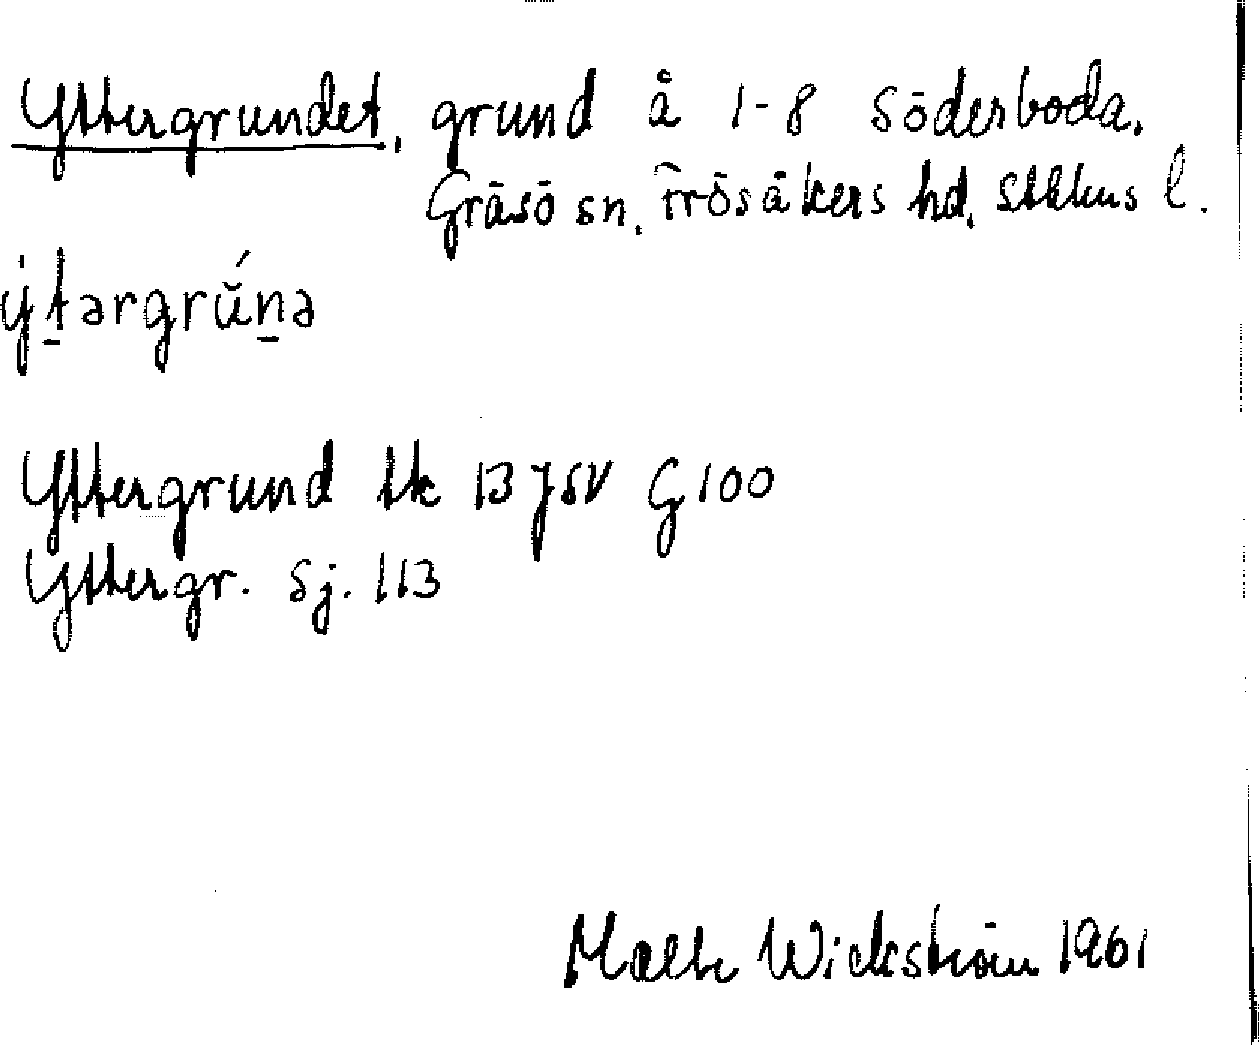 Yttergrundet, grund å 1-8 Söderboda,
Gräsö sn, Frösåkers hd, Sthlms l.
ýtargrŭ́na
Yttergrund Ek 13 JSV G 100
Yttergr. Sj. 113
Malte Wickström 1961